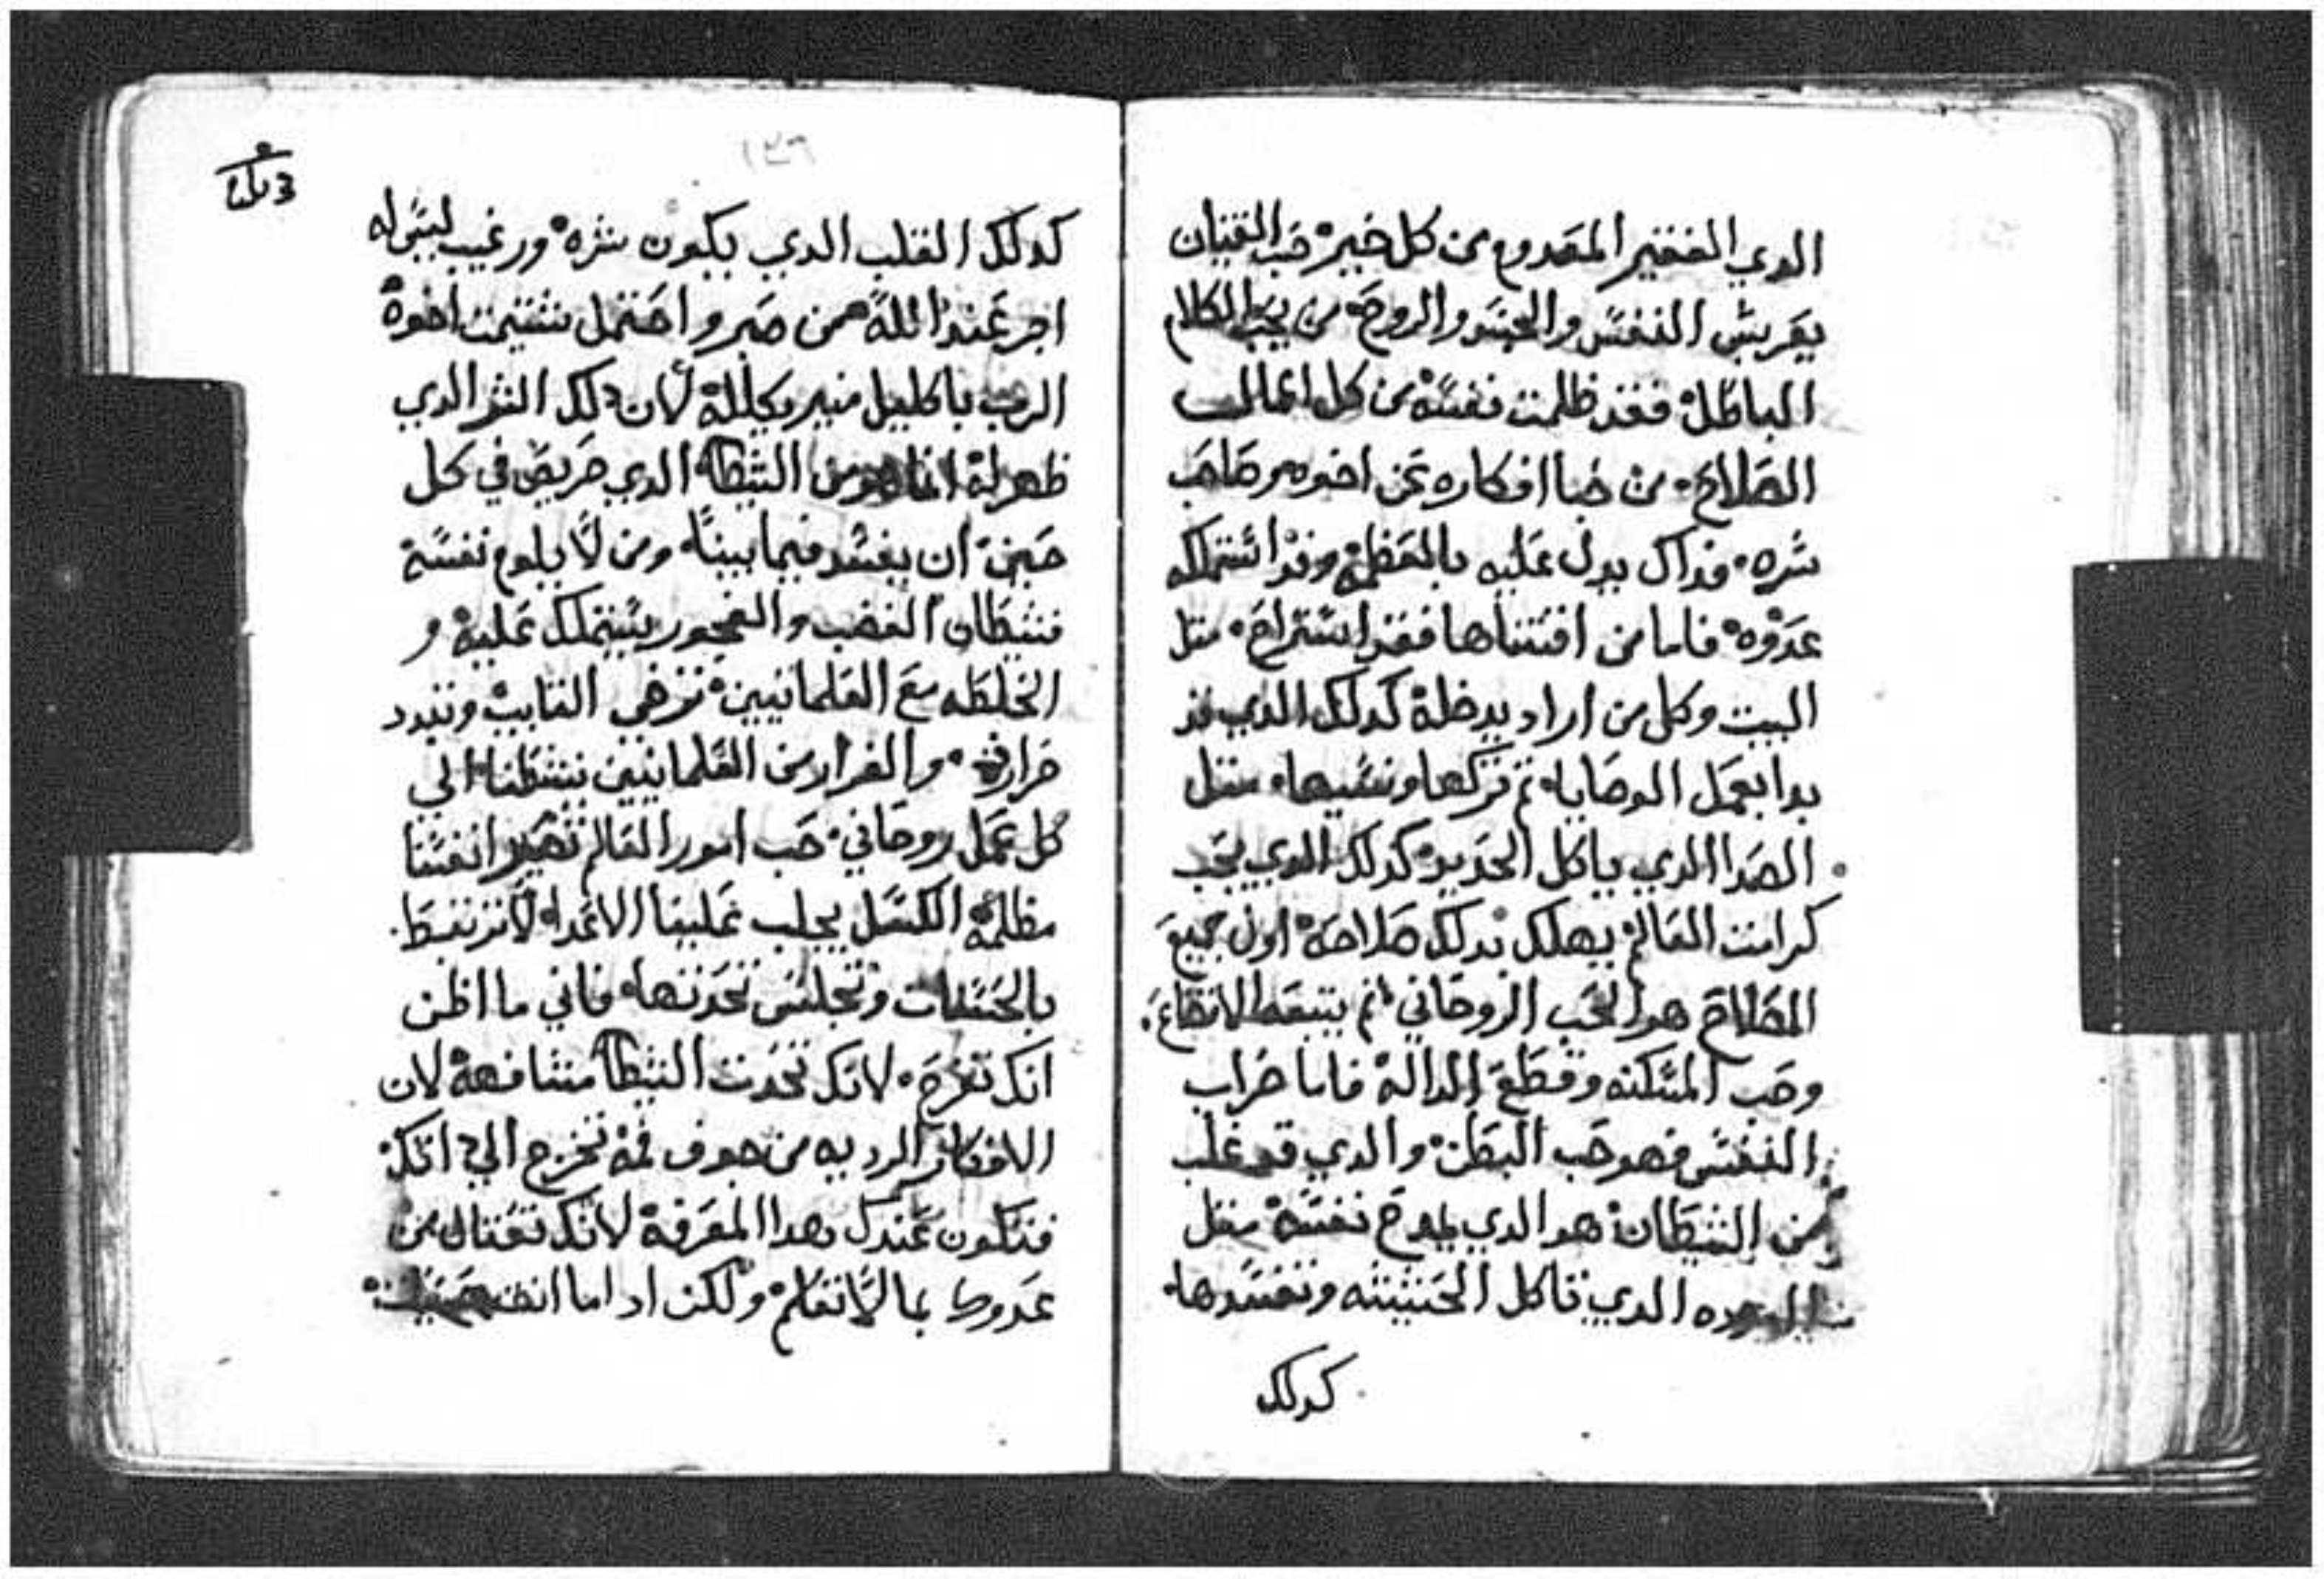 الدي الفقير المعدوم من كل خير حب القنيان
يعربس النفس والجسد والروح من يحب الكلام
الباطل فقد ظلمت نفسه من كل اعمال
الصلاح من خبا افكاره عن اخوه
شره فداك يدل عليه بالعظمة وقد اشتملكه
عدوه فاما من اقتناها فقد استراح متل
البيت وكل من اراد يدخله كدلك الدي قد
بدا بعمل الوصايا تم تركها ونسيها متل
الصدا الدي ياكل الحديد كدلك الدي يحب
كرامت العالم يهلك بدلك صلاحه اول جميع
الصلاح هو الحب الروحاني تم يتبعه الاتضاع
وحب المسكنه وقطع الدالة فاما خراب
النفس فهو حب البطن والدي قد غلب
من الشيطان هو الدي يمدح نفسه متل
الدوده الدي تاكل الخشبه وتفسدها
كدلك
كدلك القلب الدي يكون شره ورغيب ليس له
اجر عند الله من صبر واحتمل شتيمت اخوه
الرب باكليل منير يكلله لان دلك الشر الدي
ظهر له انما هو من الشيطان الدي حريص في كل
حين ان يفسد فيما بيننا ومن لا يلوم نفسه
فشيطان الغضب والفجور يستملك عليه و
الخلطه مع العلمانيين تزهي التايب وتبرد
حرارته والفرار من العلمانيين تنشطنا الي
كل عمل روحاني حب امور العالم تصير انفسنا
مظلمة الكسل يجلب علينا الاعدا لا ترتبط
بالحسنات وتجلس تحدتها فاني ما اظن
انك تفرح لانك تحدت الشيطان مشافهة لان
الافكار الرديه من جوف فمه تخرج الي
فتكون عندك هدا المعرفة لانك تقتال من
عدوك بما لا تعلم ولكن ادا ما